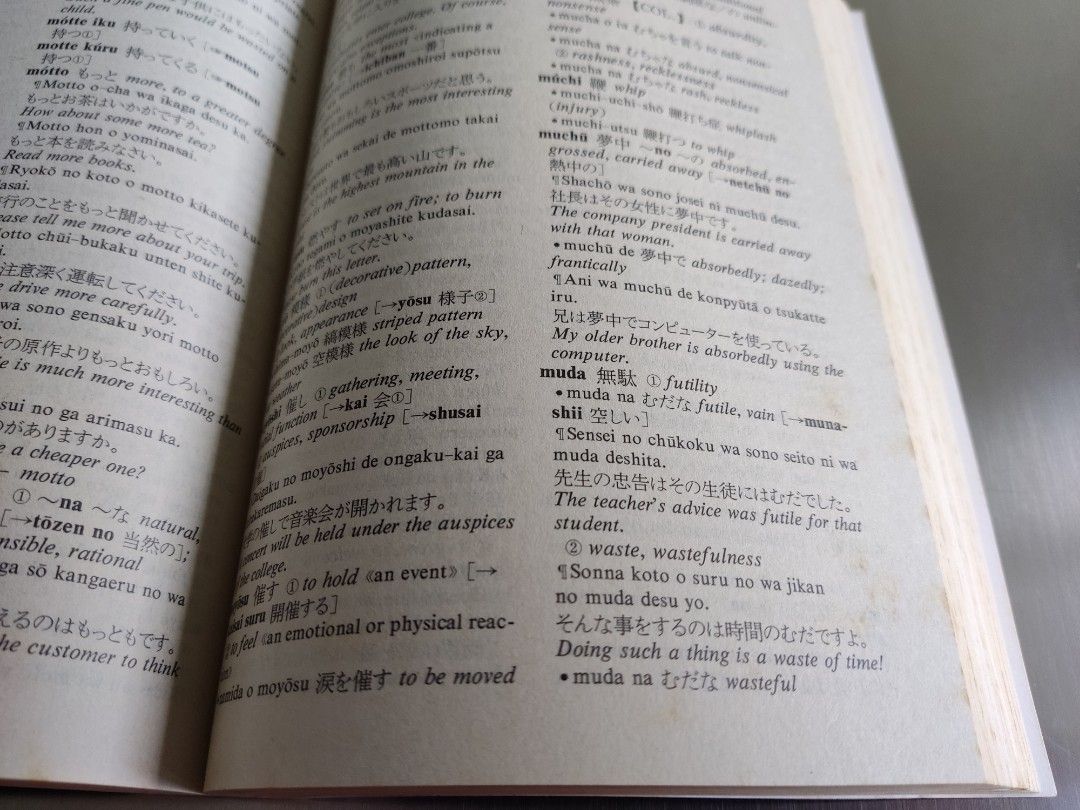 child.
mótte iku 持っていく [→motsu
持つ①]
motte kúru 持ってくる [→motsu
持つ①]
mótto もっと more, to a greater degree
¶Motto o-cha wa ikaga desu ka.
もっとお茶はいかがですか。
How about some more tea?
¶Motto hon o yominasai.
もっと本を読みなさい。
Read more books.
¶Ryokō no koto o motto kikasete ku-
dasai.
行のことをもっと聞かせてください。
ease tell me more about your trip.
Motto chūi-bukaku unten shite ku-
注意深く運転してください。
drive more carefully.
wa sono gensaku yori motto
roi.
の原作よりもっとおもしろい。
is much more interesting than
sui no ga arimasu ka.
のがありますか。
e a cheaper one?
motto
① ～na ～な natural,
[→tōzen no 当然の];
nsible, rational
ga sō kangaeru no wa
えるのはもっともです。
he customer to think
college. Of course,
exceptions.
the most 《indicating a
-ichiban 一番]
omoshiroi supōtsu
もしろいスポーツだと思う。
is the most interesting
wa sekai de mottomo takai
世界で最も高い山です。
is the highest mountain in the
燃やす to set on fire; to burn
tegami o moyashite kudasai.
燃やしてください。
burn this letter.
模様 ① (decorative)pattern,
design
look, appearance [→yōsu 様子②]
moyō 縞模様 striped pattern
moyō 空模様 the look of the sky,
weather
催し ① gathering, meeting,
function [→kai 会①]
auspices, sponsorship [→shusai
Daigaku no moyōshi de ongaku-kai ga
の催しで音楽会が開かれます。
concert will be held under the auspices
the college.
催す ① to hold 《an event》 [→
kaisai suru 開催する]
to feel 《an emotional or physical reac-
tion》
namida o moyōsu 涙を催す to be moved
【COL.】 ① absurdity,
nonsense
• mucha o iu むちゃを言う to talk non-
sense
• mucha na むちゃな absurd, nonsensical
② rashness, recklessness
• mucha na むちゃな rash, reckless
múchi 鞭 whip
• muchi-uchi-shō 鞭打ち症 whiplash
(injury)
• muchi-utsu 鞭打つ to whip
muchū 夢中 ～no ～の absorbed, en-
grossed, carried away [→netchū no
熱中の]
¶Shachō wa sono josei ni muchū desu.
社長はその女性に夢中です。
The company president is carried away
with that woman.
• muchū de 夢中で absorbedly; dazedly;
frantically
¶Ani wa muchū de konpyūtā o tsukatte
iru.
兄は夢中でコンピューターを使っている。
My older brother is absorbedly using the
computer.
muda 無駄 ① futility
• muda na むだな futile, vain [→muna-
shii 空しい]
¶Sensei no chūkoku wa sono seito ni wa
muda deshita.
先生の忠告はその生徒にはむだでした。
The teacher's advice was futile for that
student.
② waste, wastefulness
¶Sonna koto o suru no wa jikan
no muda desu yo.
そんな事をするのは時間のむだですよ。
Doing such a thing is a waste of time!
• muda na むだな wasteful